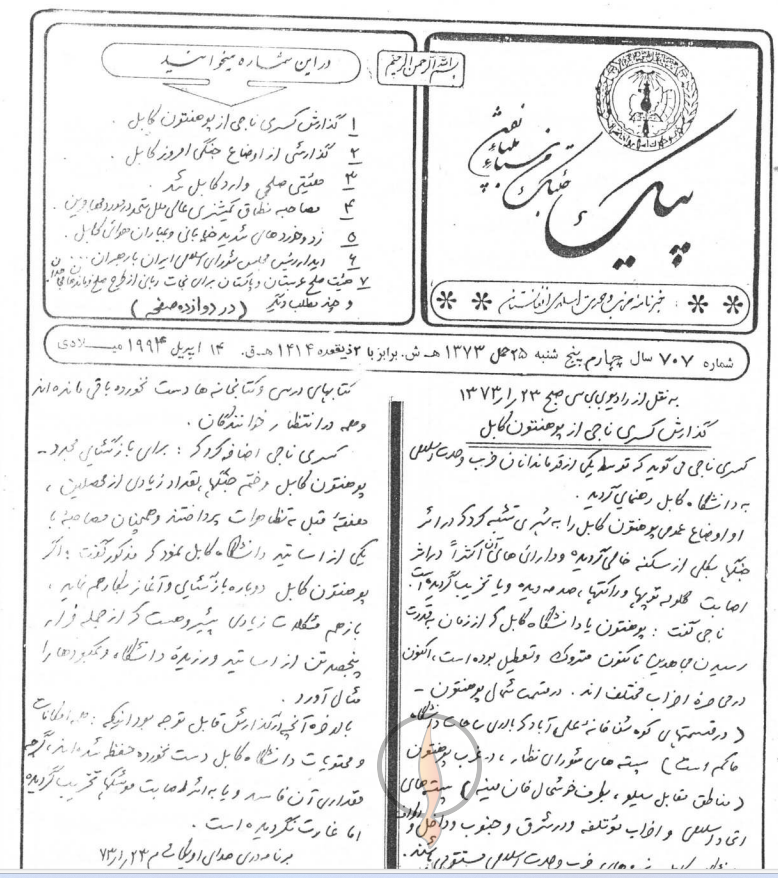 بسم الله الرحمن الرحیم
پیک
خبرنامه مرکزی حرکت اسلامی افغانستان
در این شماره میخوانید
۱ گذارش کسری ناجی از پوهنتون کابل .
۲ گذارشی از اوضاع جنگی امروز کابل .
۳ هیئتی صلحی وارد کابل شد .
۴ مصاحبه نطاق کمیشنری عالی ملل متحد در مورد مهاجرین .
۵ زد و خوردهای شدید خیابانی و بمباران هوائی کابل .
۶ دیدار رئیس مجلس شورای اسلامی ایران با رهبران ...
۷ هیئت صلح عربستان و پاکستان برای نجات ربانی از طرح صلح
و چند مطلب دیگر (در دوازده صفحه)
شماره ۷۰۷ سال چهارم پنج شنبه ۲۵ حمل ۱۳۷۳ هـ ش. برابر با ۲ ذیقعده ۱۴۱۴ هـ ق. ۱۴ اپریل ۱۹۹۴ میلادی
به نقل از رادیوی بی بی سی صبح ۲۳ ر۱ر۱۳۷۳
گذارش کسری ناجی از پوهنتون کابل
کسری ناجی می گوید که توسط یکی از قوماندانان حزب وحدت اسلامی
به دانشگاه کابل رهنمای گردید .
او اوضاع عمومی پوهنتون کابل را به شهری تشبیه کرد که در اثر
جنگها بکلی از سکنه خالی گردیده و دارائی های آن اکثراً در اثر
اصابت گلوله توپها و راکتها ، صدمه دیده و یا تخریب گردیده است .
ناجی گفت : پوهنتون یا دانشگاه کابل که از زمان به قدرت
رسیدن مجاهدین تا کنون متروک و تعطیل بوده است ، اکنون
در محاصره احزاب مختلف اند . در قسمت شمال پوهنتون -
( در قسمتهای کوه سخی و علی آباد که بالای ساحات دانشگاه
حاکم است ) پسته های شورای نظار ، در غرب پوهنتون
( مناطق مقابل سیلو ، بطرف خوشحال خان مینه ) پسته های
اتحاد اسلامی و احزاب مؤتلفه و در شرق و جنوب و داخل
کابل نیروهای حزب وحدت اسلامی مستقر می باشند .
کتابهای درسی و کتابخانه ها دست نخورده باقی مانده اند
و همه در انتظار خوانندگان .
کسری ناجی اضافه کرد که : برای بازگشائی مجدد -
پوهنتون کابل و ختم جنگها تعداد زیادی از محصلین ،
هفتهٔ قبل به تظاهرات پرداختند و همچنان مصاحبه با
یکی از اساتید دانشگاه کابل نمود که مذکور گفت : اگر
پوهنتون کابل دوباره بازگشائی و آغاز بکار هم نماید ،
باز هم مشکلات زیادی پیشروهست که از جمله فرار
پنجصد تن از اساتید ورزیدهٔ دانشگاه و کمبودها را
مثال آورد .
بالاخره آنچه از گذارش قابل توجه بود اینکه : همه امکانات
و محتویات دانشگاه کابل دست نخورده حفظ شده اند ، گرچه
مقداری آن فاسد و یا به اثر اصابت موشکها تخریب گردیده
اما غارت نگردیده است .